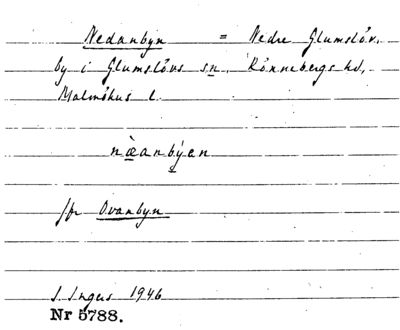 Nedanbyn = Nedre Glumslöv,
by i Glumslövs sn, Rönnebergs hd,
Malmöhus l.
næ̀anbýen
jfr Ovanbyn
I. Ingers 1946
Nr 5788.